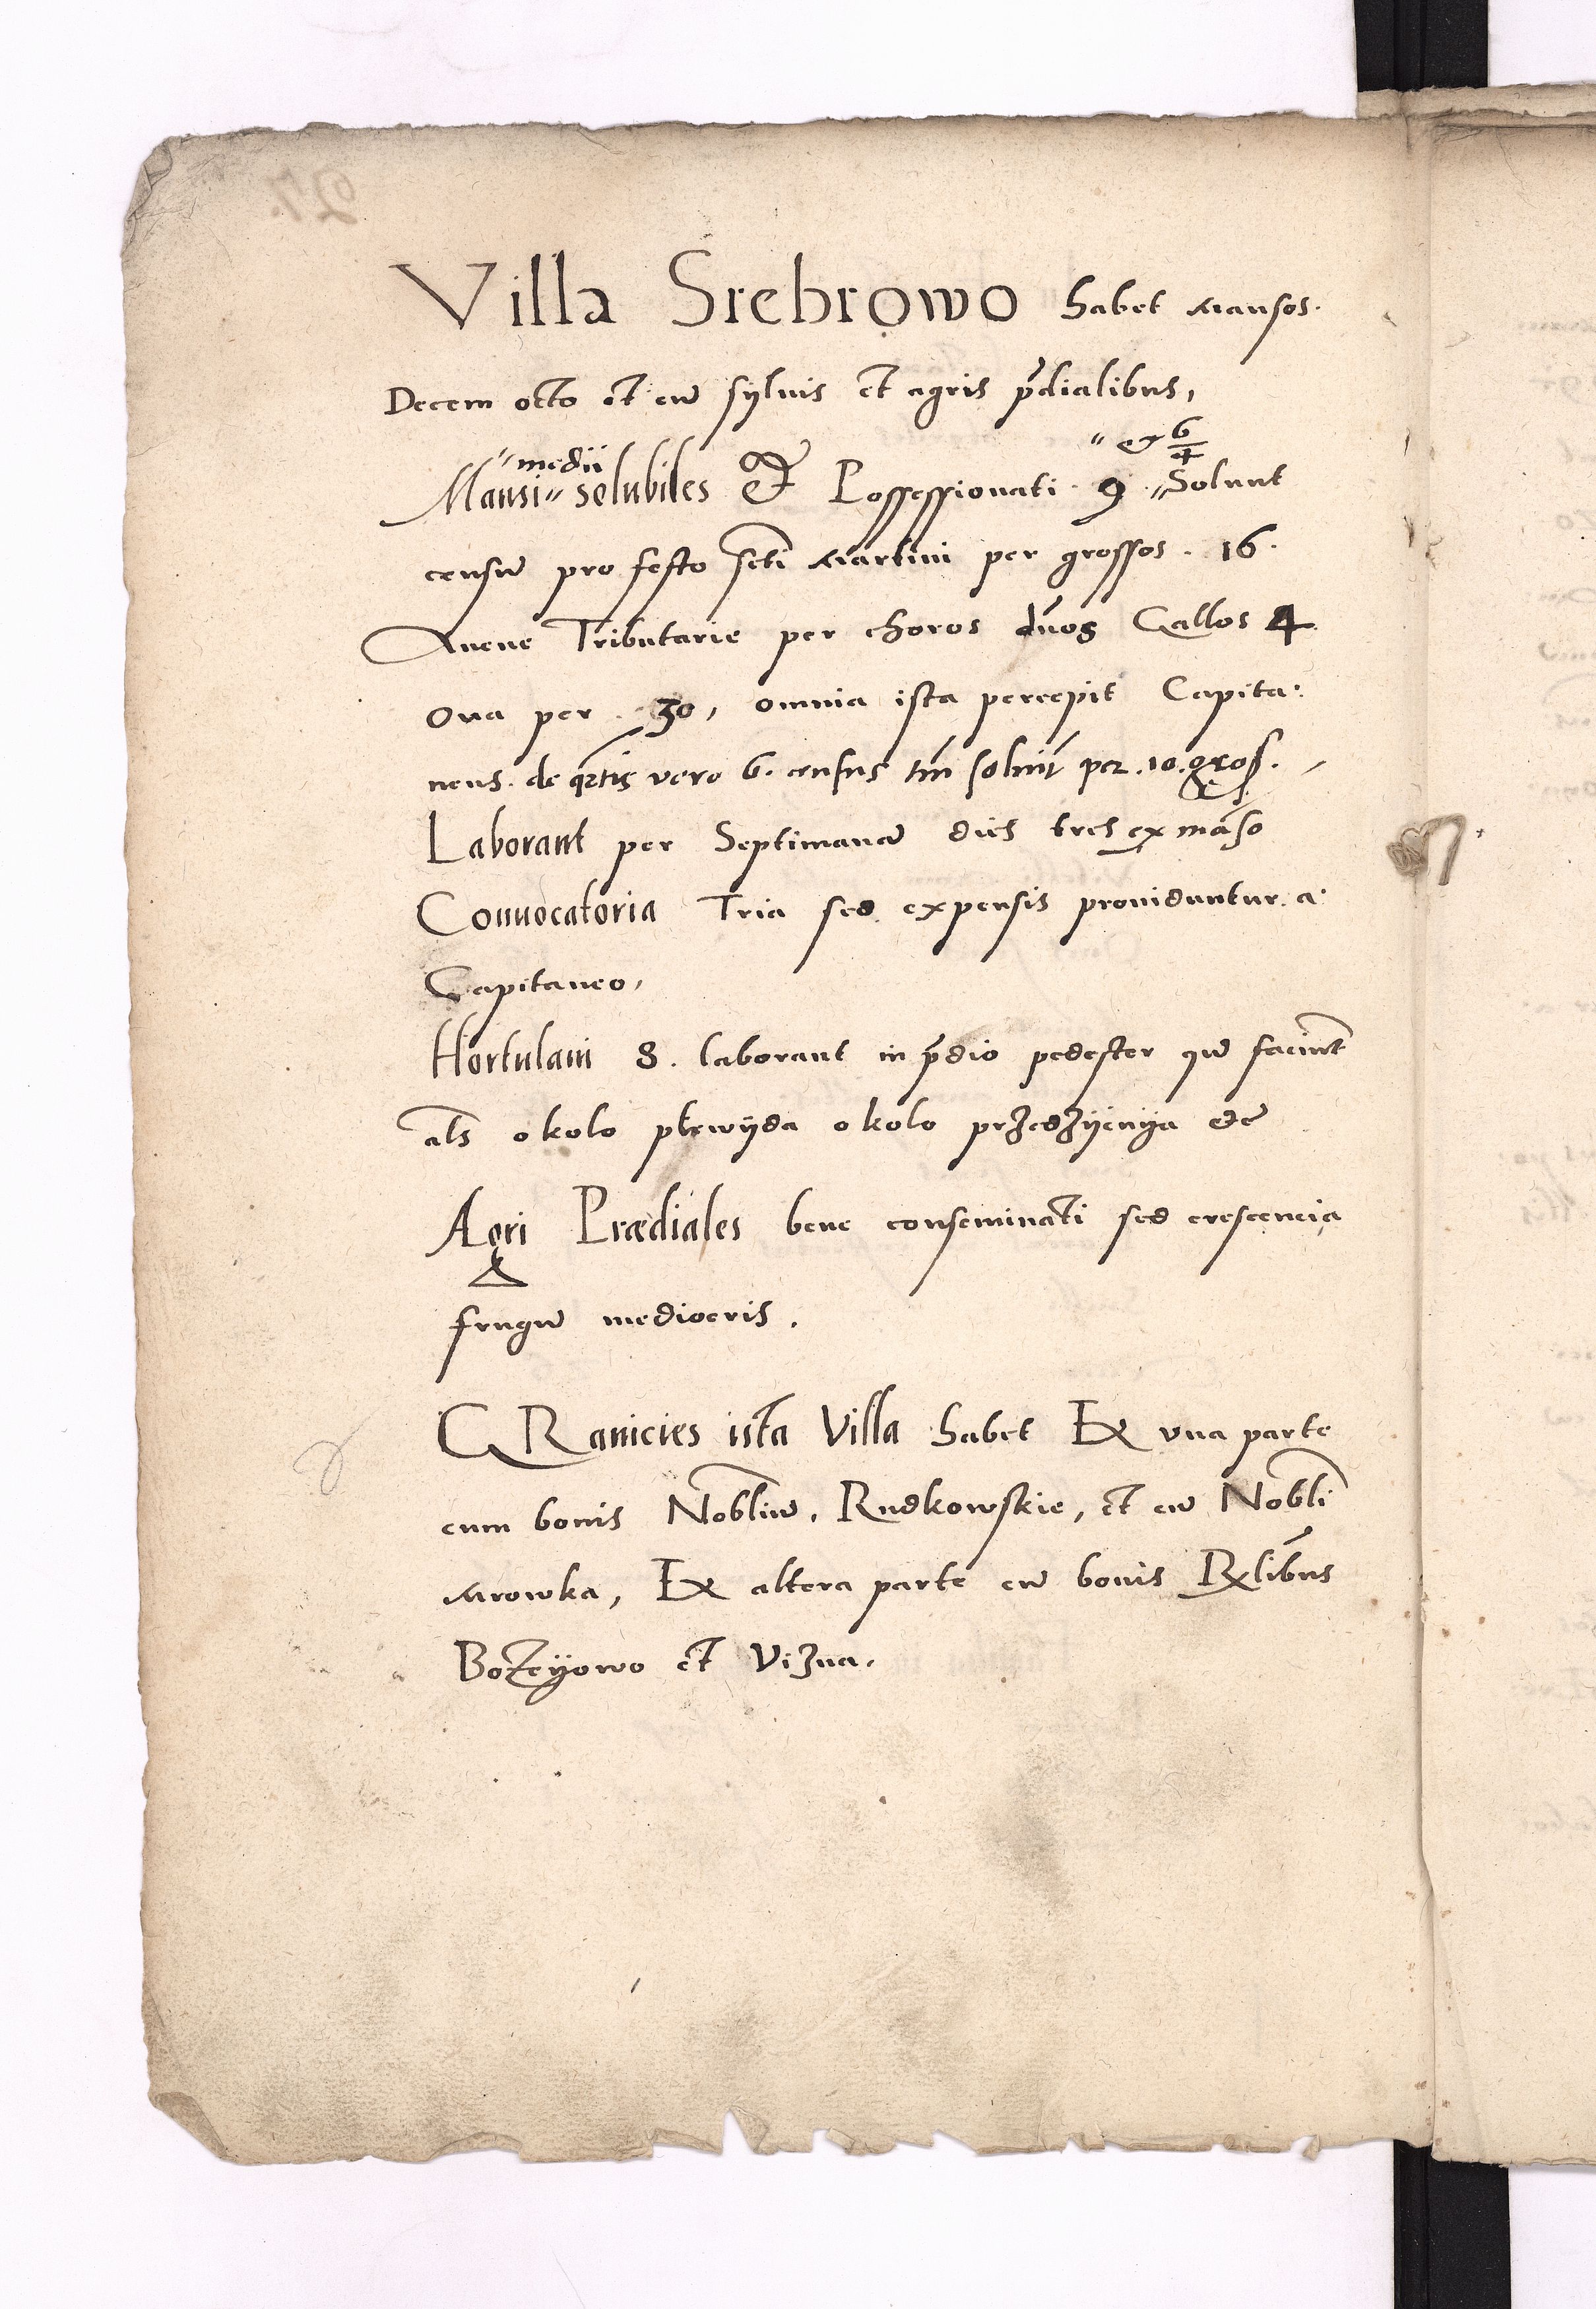 Villa Srebrowo habet mansos.
Decem octo et cū sylvis et agris p̄dialibus,
" medii " et 6/4
Mansi " solubiles et Possessionati . 9 . " Solunt
censū pro festo scti Martini per grossos . 16 .
Avene Tributarie per choros duos Gallos 4.
Ova per . 30, omnia ista percepit Capita:
neus. de qrtis vero 6. census tm̄ solvūt per .10. gros.
Laborant per Septimanā dies tres ex māso
Convocatoria Tria sed expensis providuntur a
Capitaneo,
Hortulani 8. laborant in p̄dio pedester qū faciūt
als okolo plewyda okolo przedzyenya etc
Agri Prædiales bene conseminati sed crescencia
frugū mediocris.
GRanicies ista Villa habet Ex una parte
cum bonis Nobliū. Rudkowskie, et cū Nobli
Mrowka, Ex altera parte cū bonis Rxlibus
Bozeyowo et Vizna.